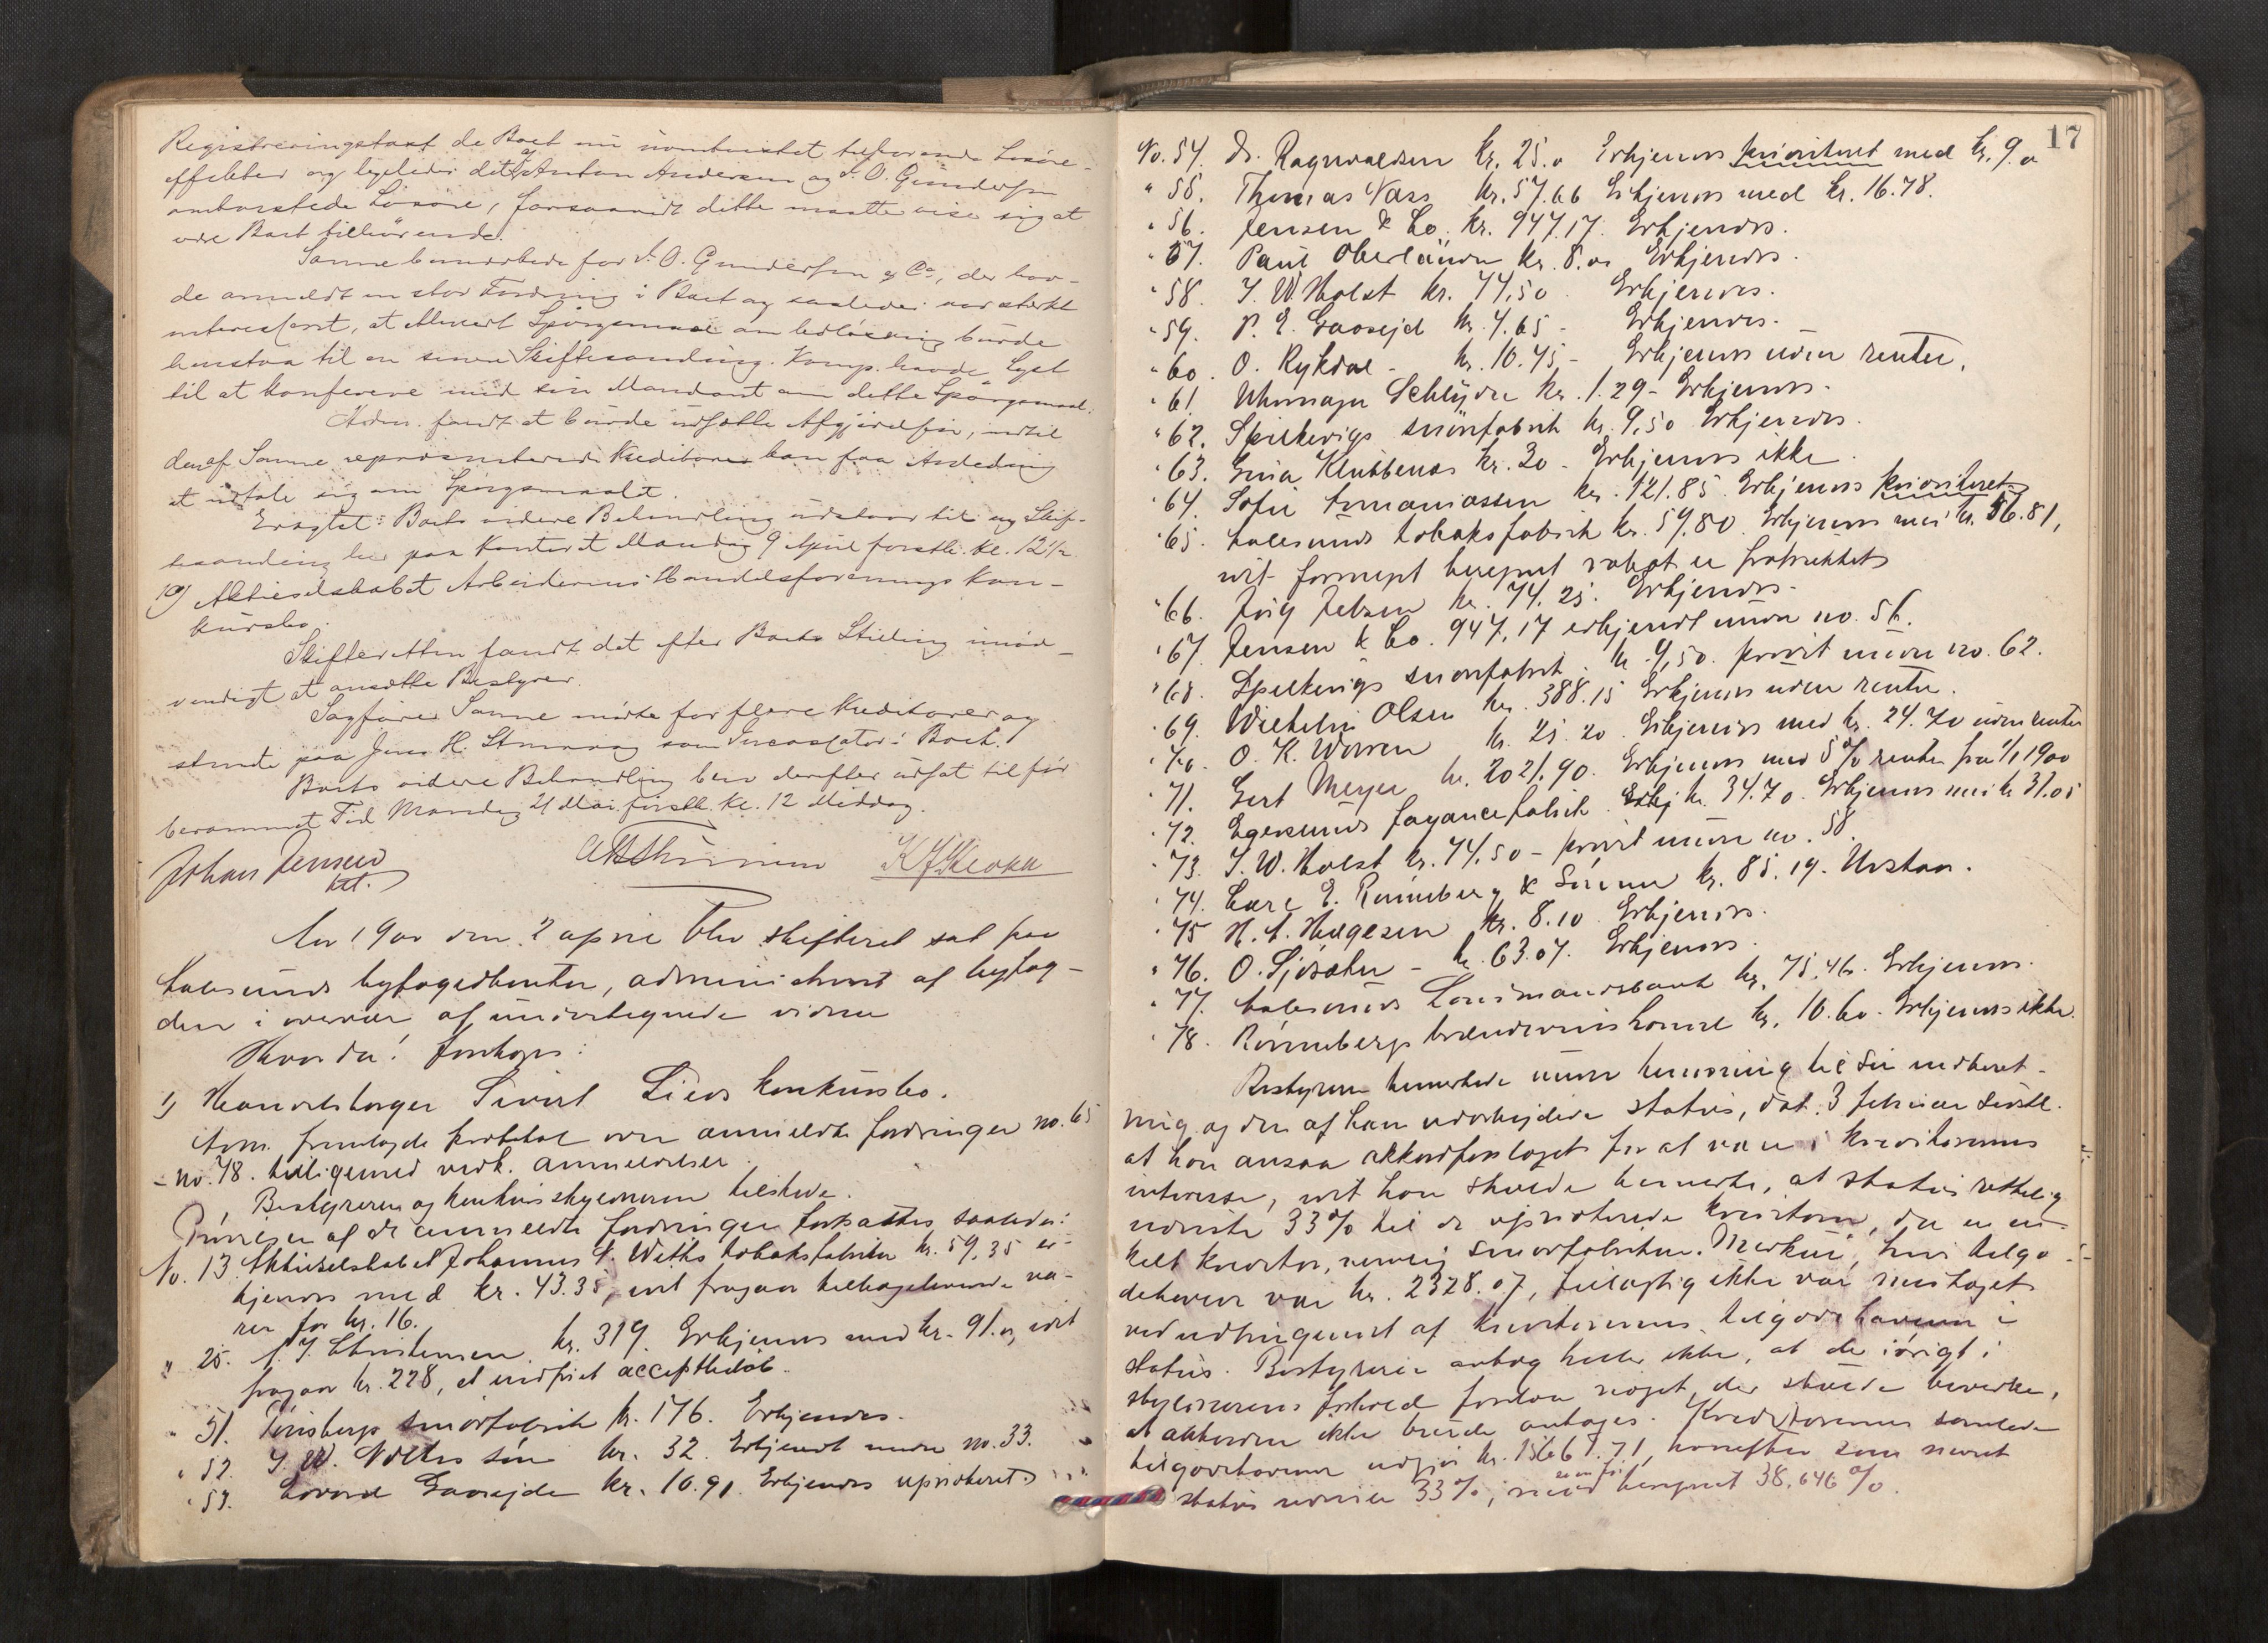 Registreringstaxt de Boet nu uomtvistet tilhørende Løsøre-
effekter og ligeledes det af Anton Andersen og S. O. Gundersen
omtvistede Løsøre, forsaavidt dette maatte vise sig at
være Boet tilhørende.
Sanne bemærkede for S. O. Gundersen & Co, der hav-
de anmeldt en stor Fordring i Boet og saaledes var stærkt
interesseret, at Spørgsmaal om burde
henstaa til en senere Skiftesamling. Komp. havde Lyst
til at konferere med sin Mandant om dette Spørgsmaal.
Adm. fandt at burde udsætte Afgjørelsen, indtil
de af Sanne repræsenterede Kreditorer kan faa Anledning
at udtale sig om Spørgsmaalet.
Eragtet: Boets videre Behandling udstaar til ny Skif-
tesamling her paa Kontoret Mandag 9 April førstk. Kl. 12½.
19) Aktieselskabet Arbeidernes Handelsforenings Kon-
kursbo.
Skifteretten fandt det efter Boets Stilling unød-
vendigt at ansætte Bestyrer.
Sagfører Sanne mødte for flere Kreditorer og
stemte paa Jens H. som Incassator i Boet.
Boets videre Behandling blev derefter udsat til før
berammet Tid Mandag 21 Mai førstk. Kl. 12 Middag.
Johan Jensen
kst.
Aar 1900 den 2 april blev skifteret sat paa
Aalesunds byfogedkontor, administreret af byfog-
den i overvær af undertegnede vidner
Hvorda! foretoges:
1) Handelsborger Sivert Lieds konkursbo.
Adm. fremlagde protokol over anmeldte fordringer no. 65
- no. 78. tilligemed vedk. anmeldelser.
Bestyreren og konkursskyldneren tilstede.
Prøvelsen af de anmeldte fordringer fortsattes saaledes:
No. 13. Aktieselskabet Johannes N. Weths tobaksfabrik kr. 59,35 er-
kjendes med kr. 43.35, idet fragaar tilbageleverede va-
rer for kr. 16.
" 25. A. J. Christensen kr. 319. Erkjendes med kr. 91.00, idet
fragaar kr. 228, et indfriet acceptbeløb.
" 51. Tønsbergs smørfabrik kr. 176. Erkjendes.
" 52. J. W. søn kr. 32. Erkjendt under no. 33.
" 53. Edvard Gaasejde kr. 10.91. Erkjendes uprioriteret.
17
No. 54. Dr. Ragnvaldsen kr. 25.00 Erkjendes prioriteret med kr. 9.00
" 55. Thomas Næss kr. 57.66 Erkjendes med kr. 16.78.
" 56. Jensen & Co. kr. 947.17. Erkjendes.
" 57. Paul Oberländer kr. 8.00 Erkjendes.
" 58. J. W. Holst kr. 74,50 Erkjendes.
" 59. P. E. Gaasejd kr. 4.65 - Erkjendes.
" 60. O. Rykdal - kr. 10.45 - Erkjendes uden renter.
" 61. Uhrmager Schlyder kr. 1.29 - Erkjendes.
" 62. Spilkevigs snørefabrik kr. 9,50 Erkjendes.
" 63. Gina Klubbenes kr. 30 - Erkjendes ikke.
" 64. Sofie Ananiassen kr. 121.85. Erkjendes prioriteret
" 65. Aalesunds tobaksfabrik kr. 59.80. Erkjendes med kr. 56.81,
idet formegt beregnet rabat er fratrukket
" 66. Jørg Jebsen kr. 74.25. Erkjendes.
" 67. Jensen & Co. 947,17 erkjendt under no. 56.
" 68. Spilkevigs snørefabrik. kr. 9,50. prøvet under no. 62.
" 69. Wilhelm Olsen kr. 388.15 Erkjendes uden renter.
" 70. O. K. Warren kr. 25.20. Erkjendes med kr. 24.70 uden renter
" 71. Gert Meyer kr. 2021.90. Erkjendes med 5% renter fra 1/1 1900
" 72. Egersunds fayancefabrik kr. 34.70. Erkjendes med kr 31.05
" 73. J. W. Holst kr. 74.50 - prøvet under no. 58.
" 74. Carl E. Rønneberg & Sønner kr. 85.19. Udstaar.
" 75 H. A. Helgesen kr. 8.10 Erkjendes.
" 76. O. Sjøsæter - kr. 63.07. Erkjendes.
" 77. Aalesunds Landmandsbank kr. 75.46. Erkjendes.
" 78. Rønnebergs brændevinshandel kr. 10.60. Erkjendes ikke.
Bestyreren bemerkede under henvisning til sin indberet-
ning og den af ham udarbejdede status, dat. 3 februar sidstl.
at han ansaa akkordforslaget for at være i kreditorernes
interesse, idet han skulde bemerke, at status rettelig
udviste 33% til de uprioriterede kreditorer, da en en-
kelt kreditor, nemlig smørfabriken Merkur, hvis tilgo-
dehavende var kr. 2328.07, feilagtig ikke var medtaget
ved udregningen af kreditorernes tilgodehavende i
status. Bestyreren antog heller ikke, at der iøvrigt i
skyldnerens forhold forelaa noget, der skulde bevirke,
at akkorden ikke burde antages. Kreditorernes samlede
tilgodehavende udgjør kr. 15667.71, hvorefter som nævnt
status udviser 33%, beregnet 38,646%.